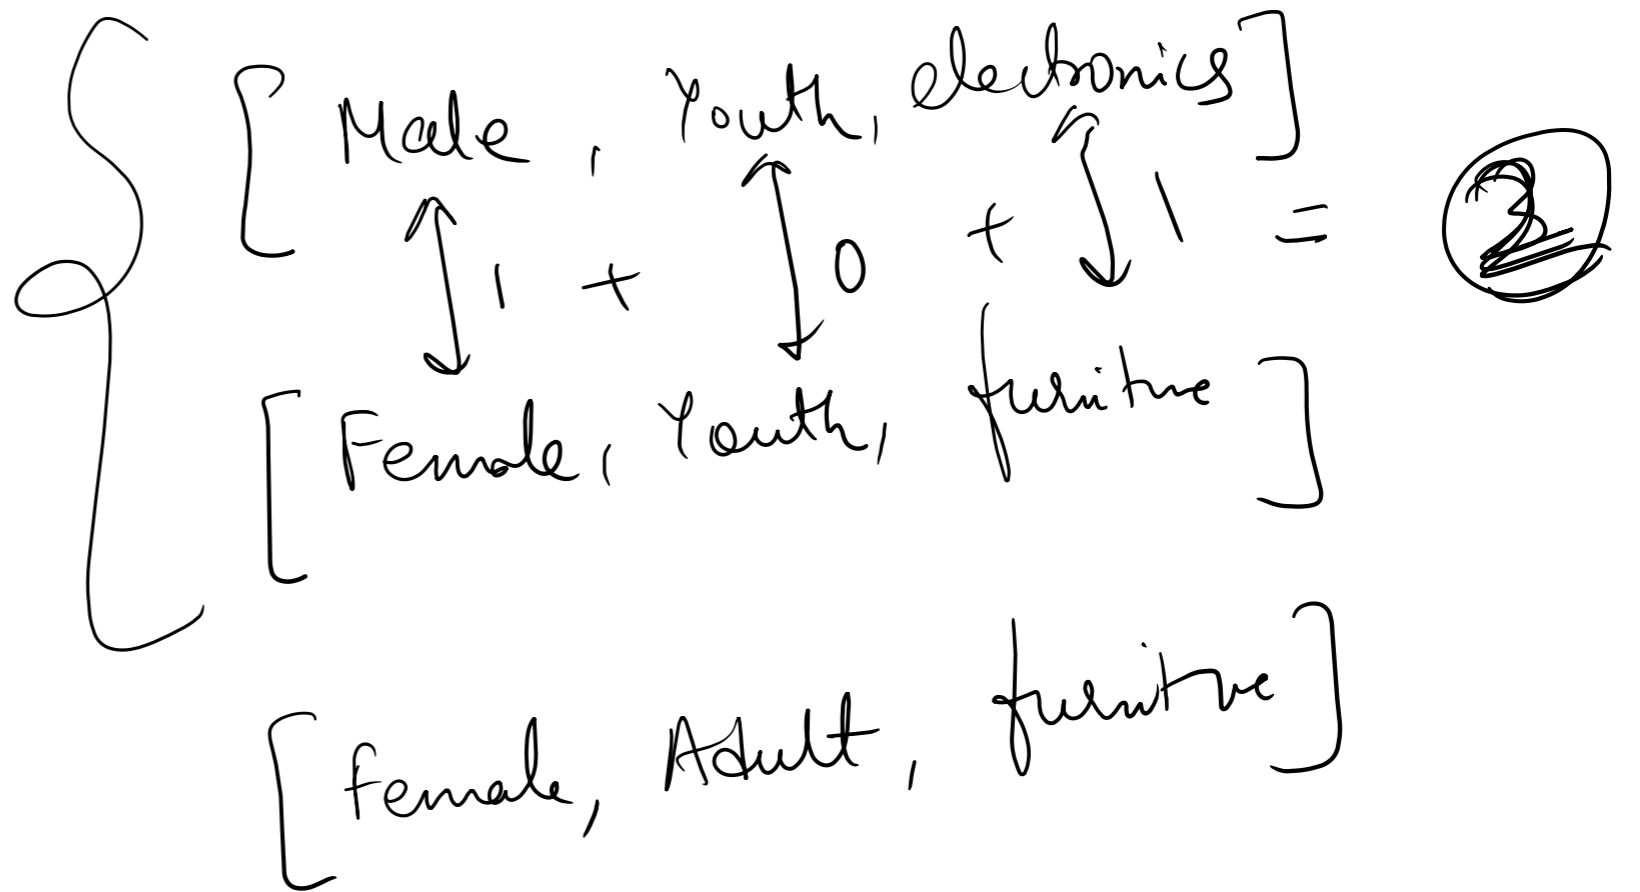 [Male, Youth, electronics]
1 + 0 + 1 = 2
[Female, Youth, furniture]
[Female, Adult, furniture]